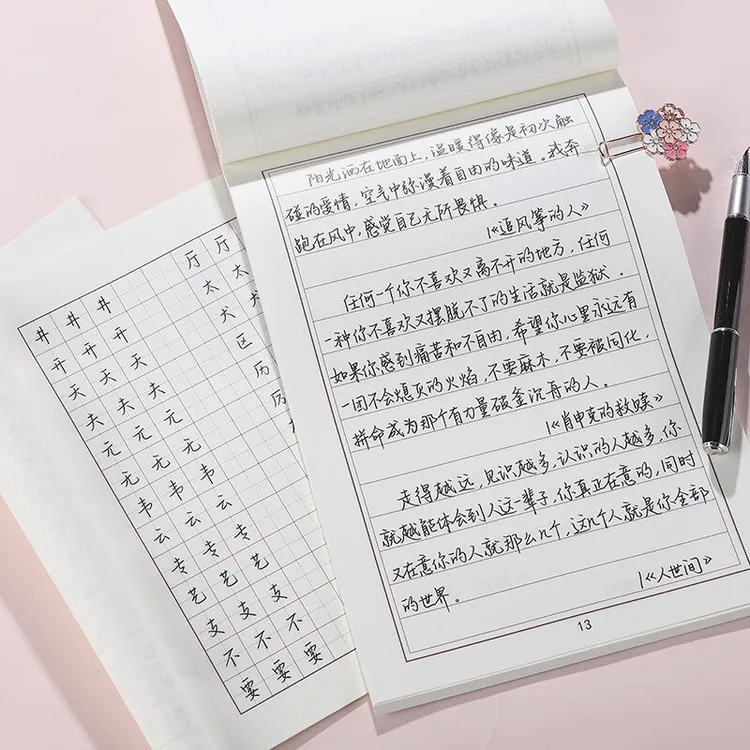 阳光洒在地面上，温暖得像是初次触
碰的爱情，空气中弥漫着自由的味道。我奔
跑在风中，感觉自己无所畏惧。
|《追风筝的人》
任何一个你不喜欢又离不开的地方，任何
一种你不喜欢又摆脱不了的生活就是监狱。
如果你感到痛苦和不自由，希望你心里永远有
一团不会熄灭的火焰，不要麻木，不要被同化，
拼命成为那个有力量破釜沉舟的人。
|《肖申克的救赎》
走得越远，见识越多，认识的人越多，你
就越能体会到人这一辈子，你真正在意的，同时
又在意你的人就那么几个，这几个人就是你全部
的世界。
|《人世间》
13
井井井
开开开
天天天
夫夫夫
元元元
无无无
韦韦韦
云云云
专专专
艺艺艺
支支支
不不不
要要要
厅厅
太太
犬犬
区
历